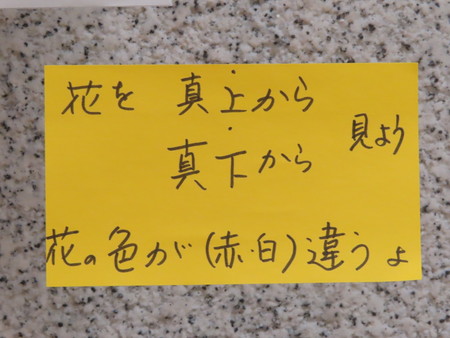 花を 真上から
真下から
見よう
花の色が(赤・白)違うよ